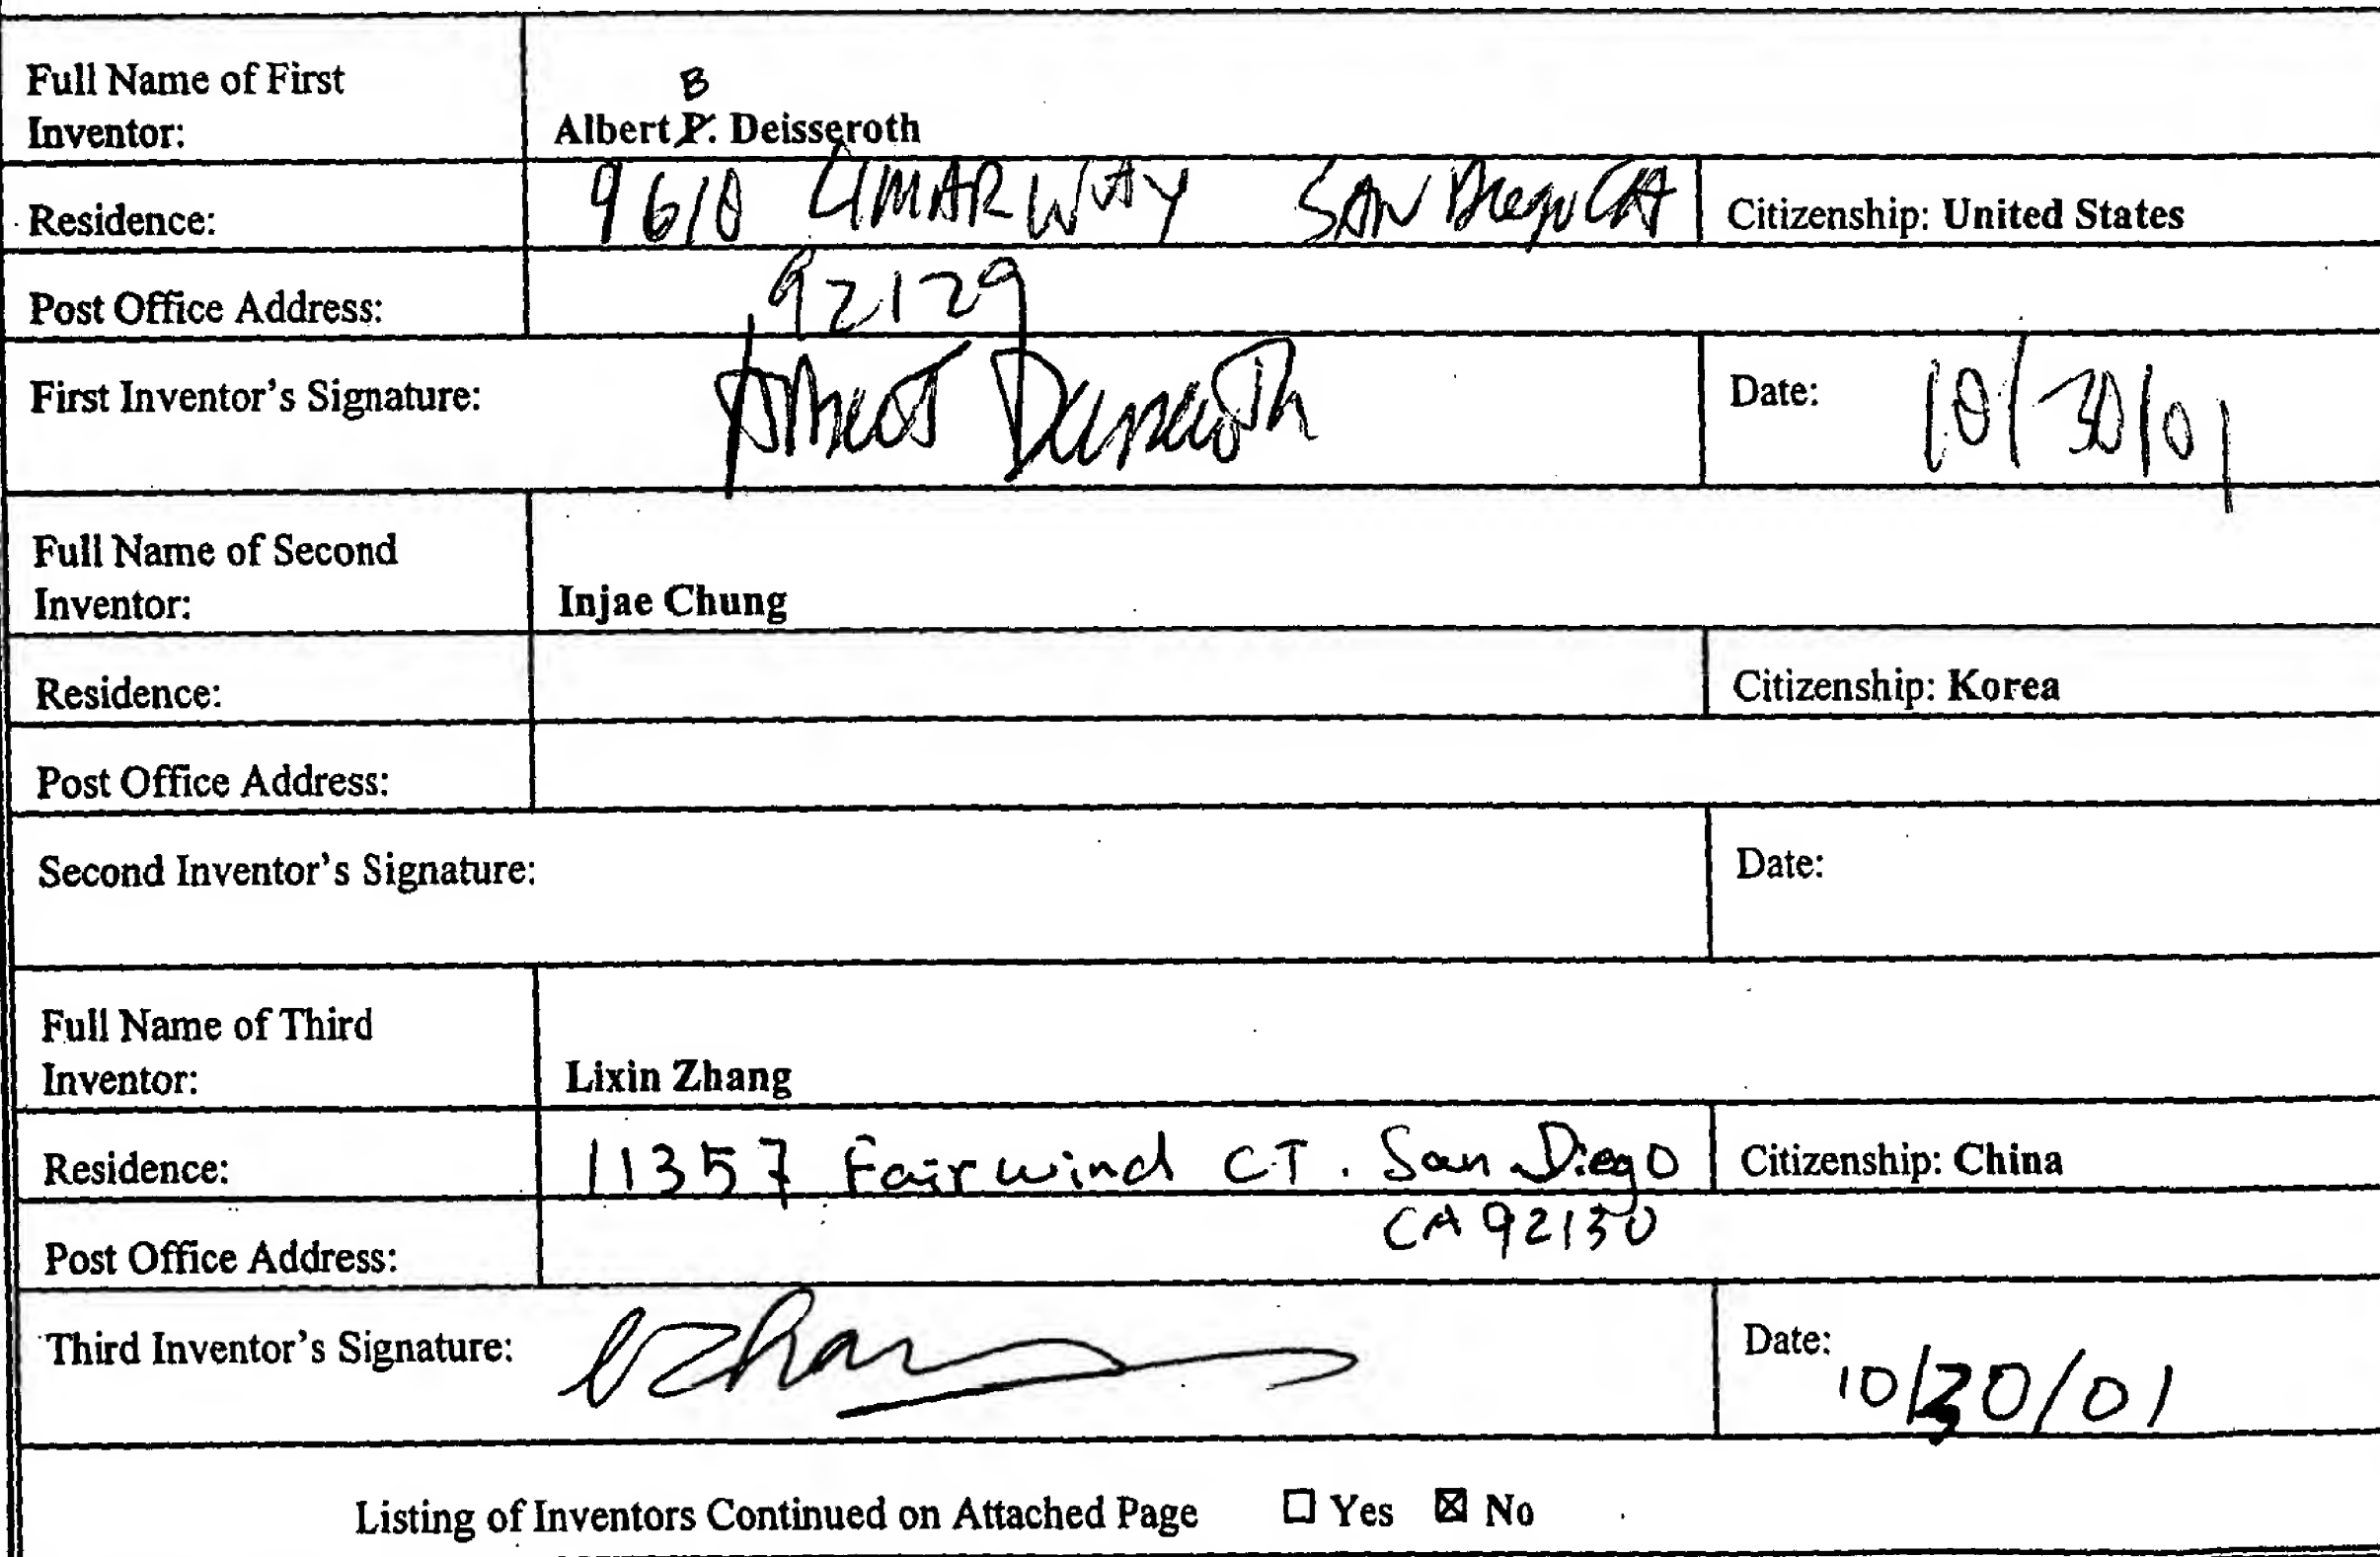 Full Name of First
Inventor:
B
Albert P. Deisseroth
Residence: 9610 LIMAR WAY SAN Diego CA Citizenship: United States
Post Office Address: 92129
First Inventor's Signature: Albert Deisseroth Date: 10/30/01
Full Name of Second
Inventor: Injae Chung
Residence: Citizenship: Korea
Post Office Address:
Second Inventor's Signature: Date:
Full Name of Third
Inventor: Lixin Zhang
Residence: 11357 Fairwind CT. San Diego Citizenship: China
Post Office Address: CA 92130
Third Inventor's Signature: LZhang Date: 10/30/01
Listing of Inventors Continued on Attached Page ☐ Yes ☒ No